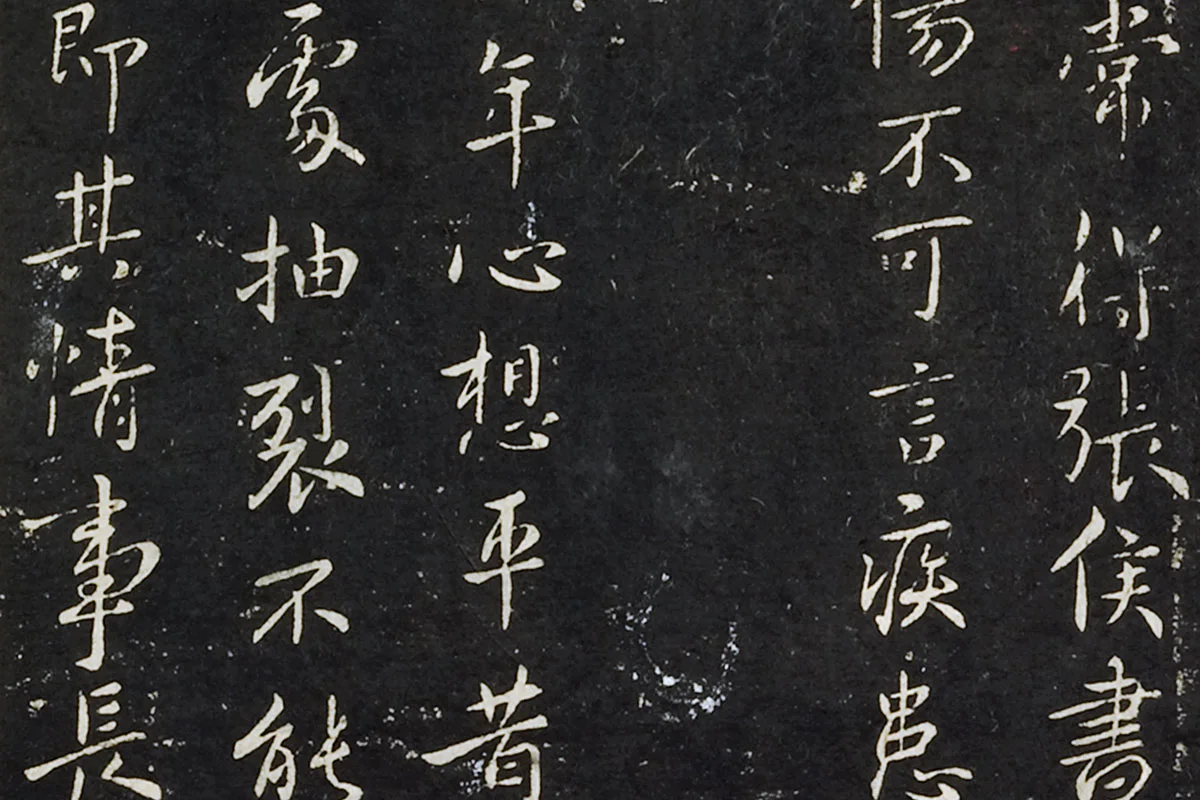 常得張侯書
傷不可言疾患
年心想平昔
處抽裂不能
即其情事長